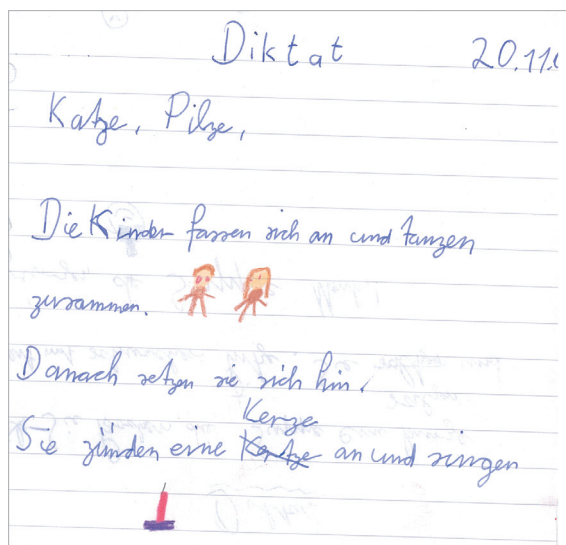 Diktat 20.11.
Katze, Pilze,
Die Kinder fassen sich an und tanzen
zusammen.
Danach setzen sie sich hin.
Kerze
Sie zünden eine Kertze an und singen